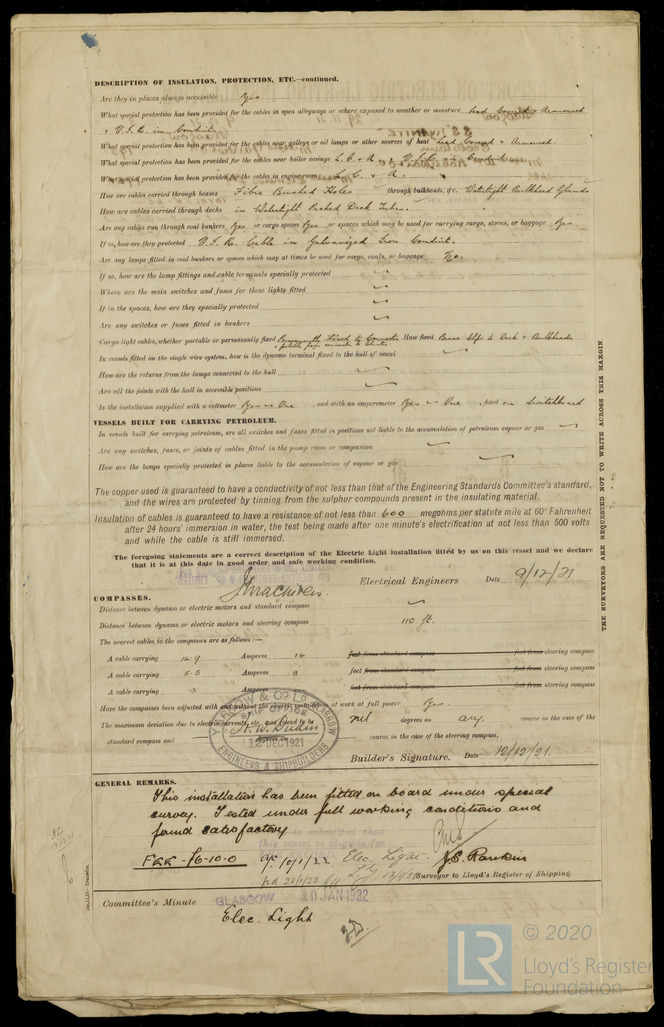 DESCRIPTION OF INSULATION, PROTECTION, ETC.—continued.
Are they in places always accessible Yes
What special protection has been provided for the cables in open alleyways or where exposed to weather or moisture Lead Covered & Armoured
& V.I.R. in Conduit
What special protection has been provided for the cables near galleys or oil lamps or other sources of heat Lead Covered & Armoured.
What special protection has been provided for the cables near boiler casings L.C. & A. V.I.R. in Conduit
What special protection has been provided for the cables in engineroom L. C. & A.
How are cables carried through beams Fibre Bushed Holes through bulkheads, &c. Watertight Bulkhead Glands
How are cables carried through decks in Watertight Packed Deck Tubes.
Are any cables run through coal bunkers Yes or cargo spaces Yes or spaces which may be used for carrying cargo, stores, or baggage Yes
If so, how are they protected V.I.R. Cable in Galvanized Iron Conduit.
Are any lamps fitted in coal bunkers or spaces which may at times be used for cargo, coals, or baggage No.
If so, how are the lamp fittings and cable terminals specially protected
Where are the main switches and fuses for these lights fitted
If in the spaces, how are they specially protected
Are any switches or fuses fitted in bunkers
Cargo light cables, whether portable or permanently fixed Permanently Fixed to Connector How fixed Brass Clips to Deck & Bulkheads
& portable from
In vessels fitted on the single wire system, how is the dynamo terminal fixed to the hull of vessel
How are the returns from the lamps connected to the hull
Are all the joints with the hull in accessible positions
Is the installation supplied with a voltmeter Yes — One, and with an amperemeter Yes — One, fixed on Switchboard
VESSELS BUILT FOR CARRYING PETROLEUM.
In vessels built for carrying petroleum, are all switches and fuses fitted in positions not liable to the accumulation of petroleum vapour or gas
Are any switches, fuses, or joints of cables fitted in the pump room or companion
How are the lamps specially protected in places liable to the accumulation of vapour or gas
The copper used is guaranteed to have a conductivity of not less than that of the Engineering Standards Committee's standard,
and the wires are protected by tinning from the sulphur compounds present in the insulating material.
Insulation of cables is guaranteed to have a resistance of not less than 600 megohms per statute mile at 60° Fahrenheit
after 24 hours' immersion in water, the test being made after one minute's electrification at not less than 500 volts
and while the cable is still immersed.
The foregoing statements are a correct description of the Electric Light installation fitted by us on this vessel and we declare
that it is at this date in good order and safe working condition.
Electrical Engineers Date 9/12/21
COMPASSES.
Distance between dynamo or electric motors and standard compass
Distance between dynamo or electric motors and steering compass 110 ft.
The nearest cables to the compasses are as follows:—
A cable carrying 14.9 Amperes 14 feet from standard compass feet from steering compass
A cable carrying 5.5 Amperes 8 feet from standard compass feet from steering compass
A cable carrying Amperes feet from standard compass feet from steering compass
Have the compasses been adjusted with and without the electric installation at work at full power Yes.
The maximum deviation due to electric currents, etc., was found to be nil degrees on any. course in the case of the
standard compass and course in the case of the steering compass.
YARROW & CO LD. GLASGOW
SHIP OFFICE
12 DEC 1921
ENGINEERS & SHIPBUILDERS
Builder's Signature. Date 12/12/21.
GENERAL REMARKS.
This installation has been fitted on board under special
survey. Tested under full working conditions and
found satisfactory
FEE - £6-10-0 Elec. Light.
J.E. Rankin
Surveyor to Lloyd's Register of Shipping.
Committee's Minute GLASGOW 10 JAN 1922
Elec. Light
THE SURVEYORS ARE REQUESTED NOT TO WRITE ACROSS THIS MARGIN
LR
© 2020
Lloyd's Register
Foundation